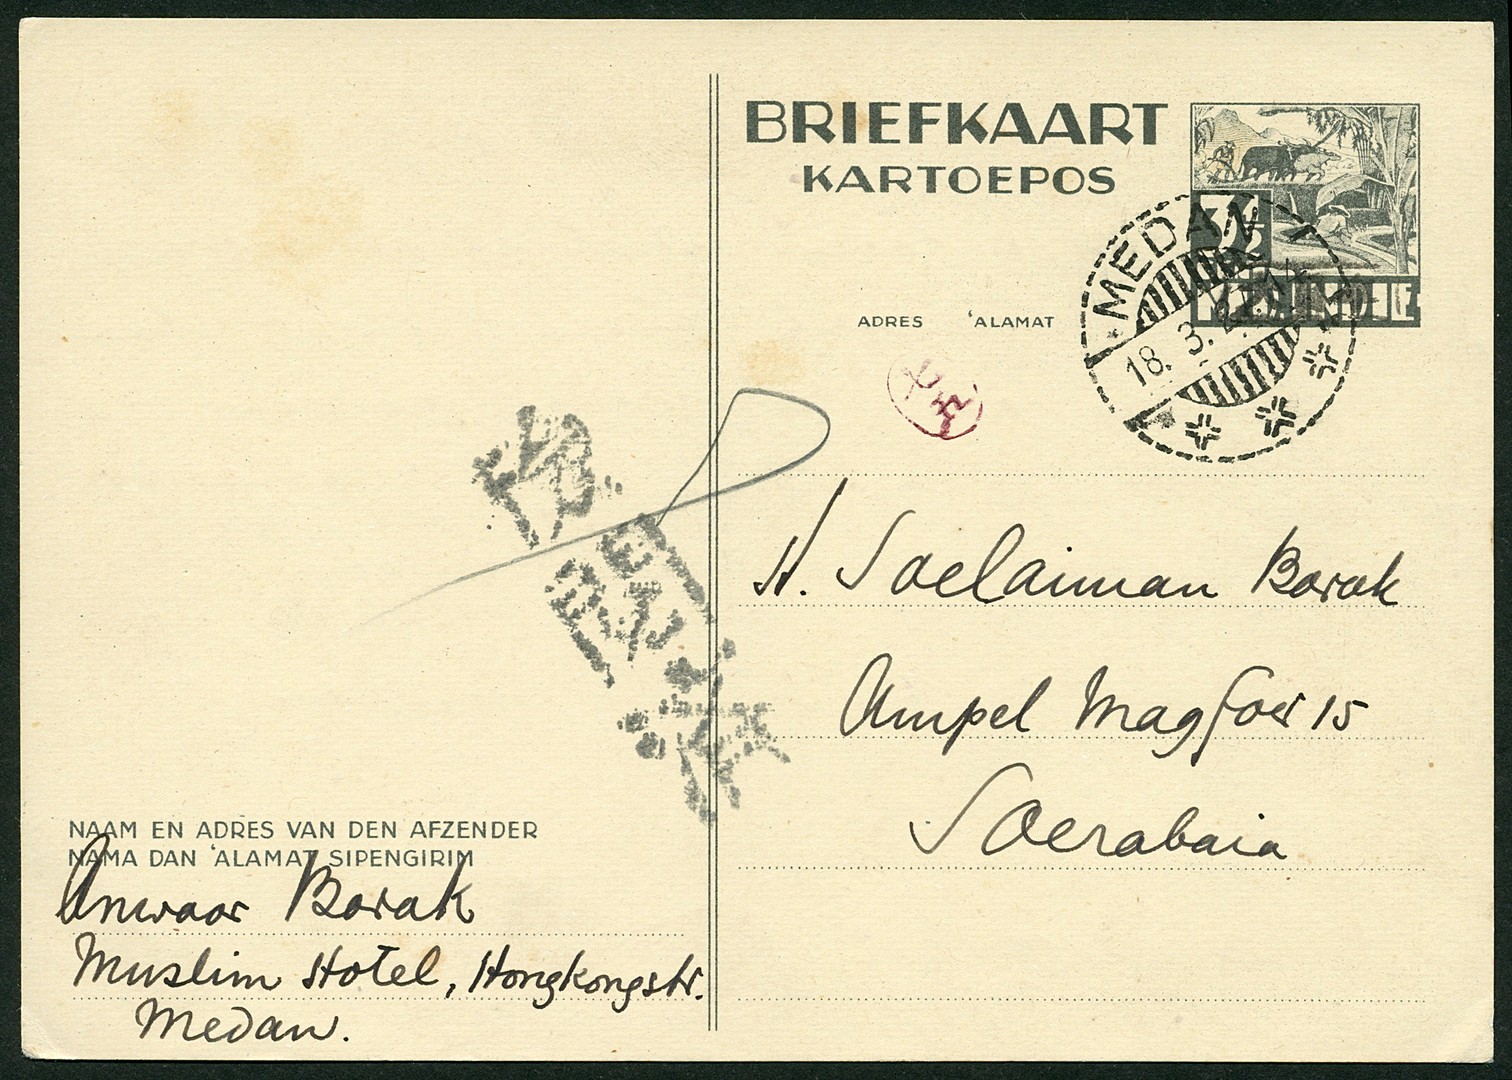 BRIEFKAART
KARTOEPOS
3½
NED. INDIE
MEDAN
18. 3.
ADRES 'ALAMAT
H. Soelaiman Barak
Ampel Magfoer 15
Soerabaia
NAAM EN ADRES VAN DEN AFZENDER
NAMA DAN 'ALAMAT SIPENGIRIM
Anwaar Barak
Muslim Hotel, Hongkongstr.
Medan.